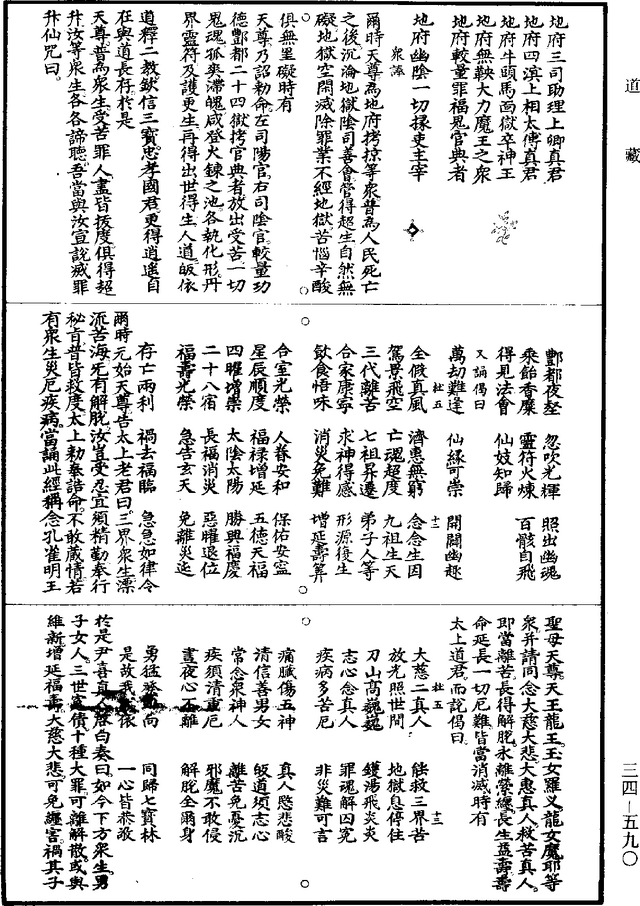 道藏
地府三司助理上卿真君
地府四溟上相太傅真君
地府牛頭馬面獄卒神王
地府無鞅大力魔王之衆
地府較量罪福鬼官典者
地府幽陰一切掾吏主宰
衆誦
爾時天尊為地府拷掠等衆普為人民死亡
之後沉淪地獄陰司善會當得超生自然無
礙地獄空閑滅除罪業不經地獄苦惱辛酸
俱無罣礙時有
天尊乃詔勅命左司陽官右司陰官較量功
德酆都二十四獄拷官典者放出受苦一切
鬼魂孤爽滯魄咸登火鍊之池各執化形丹
界靈符及護更生再得出世得生人道皈依
道釋二教欽信三寶忠孝國君更得逍遙自
在與道長存於是
天尊普為衆生受苦罪人盡皆拔度俱得超
昇汝等衆生各各諦聽吾當與汝宣說滅罪
升仙咒曰
酆都夜壑 忽吹光輝 照出幽魂
乘飴香糜 靈符火煉 百骸自飛
得見法會 仙妓知歸
又誦偈曰
萬劫難逢 仙緣可崇 開闢幽趣
杜五 十二
全假真風 濟惠無窮 念念生因
駕景飛空 亡魂超度 九祖生天
三代離苦 七祖昇遷 弟子人等
合家康寧 求神得感 形源復生
飲食悟味 消災免難 增延壽算
合室光榮 人眷安和 保佑安寍
星辰順度 福祿增延 五德天福
四曜增崇 太陰太陽 勝興福慶
二十八宿 長福消災 惡曜退位
福壽光榮 急告玄天 免離災迍
存亡兩利 禍去福臨 急急如律令
爾時元始天尊告太上老君曰三界衆生漂
流苦海死有解脫汝豈受忍宜須精勤奉行
秘旨普皆救度太上勑奏誥命不敢蔵情若
有衆生災厄疾病當誦此經稱念孔雀明王
聖母天尊天王龍王玉女羅义龍女魔耶等
衆并請同念大慈大悲大惠真人救苦真人
即當離苦長得解脫永離縈纏長生益壽壽
命延長一切厄難皆當消滅時有
太上道君而說偈曰
大慈二真人 能救三界苦
杜五 十三
放光照世間 地獄息停住
刀山高巍巍 鑊湯飛炎炎
志心念真人 罪魂解囚冤
疾病多苦厄 非災難可言
痛臟傷五神 真人愍悲酸
清信善男女 皈道須志心
常念衆神人 離苦免憂沉
疾須清重厄 邪魔不敢侵
晝夜心不離 解脫全爾身
勇猛 向 同歸七寶林
是故我 依 一心皆恭敬
於是尹喜真人啓白奏曰如今下方衆生男
子女人三世冤債十種大罪可離解散或與
維新增延福壽大慈大悲可免纏害禍其子
三四－五九〇